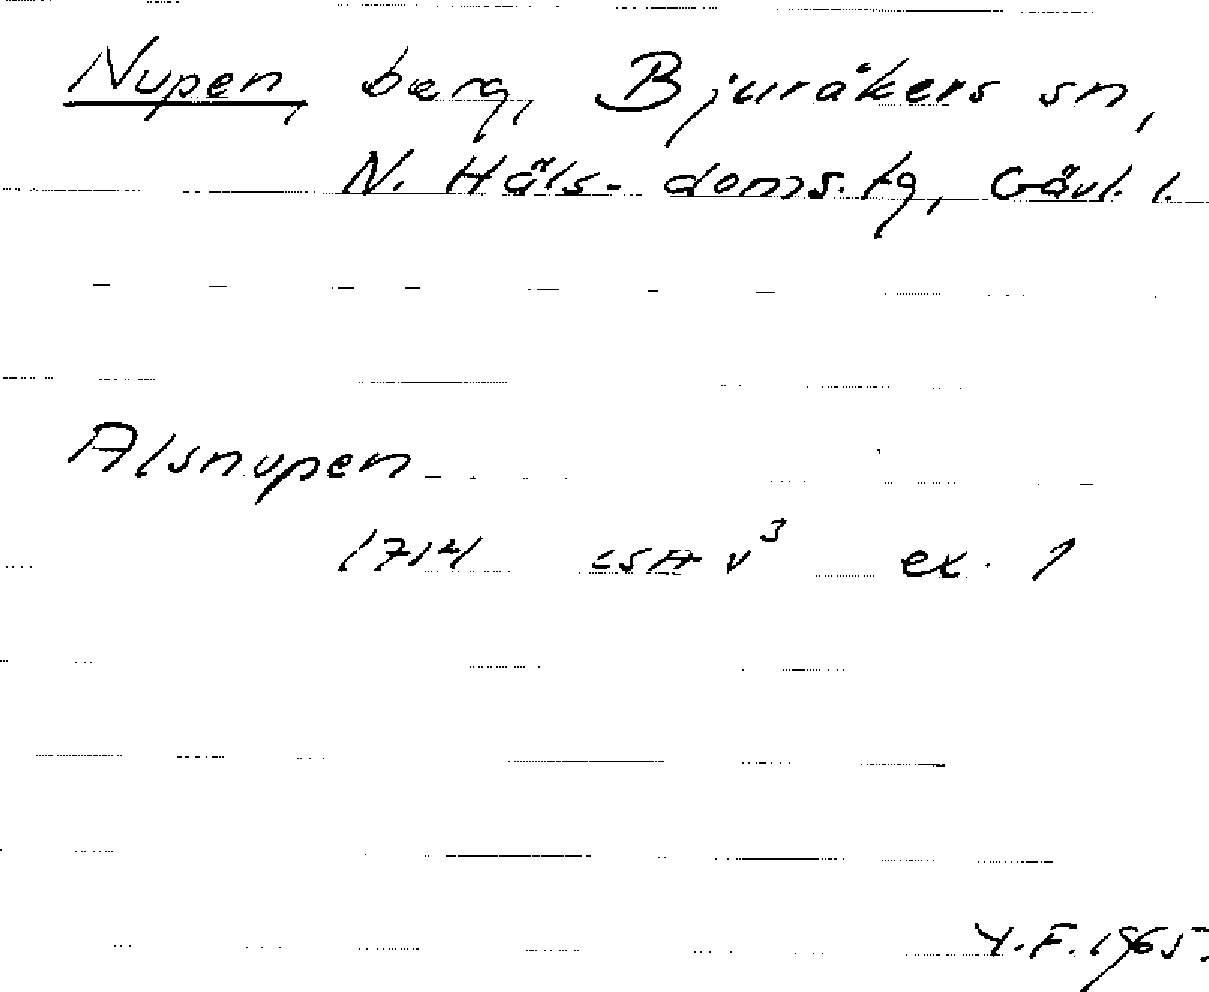 Nupen, berg, Bjuråkers sn,
N. Häls. doms.tg, Gävl. l.
Alsnupen
1714 LSA v³ ex. 1
Y.F. 1965.